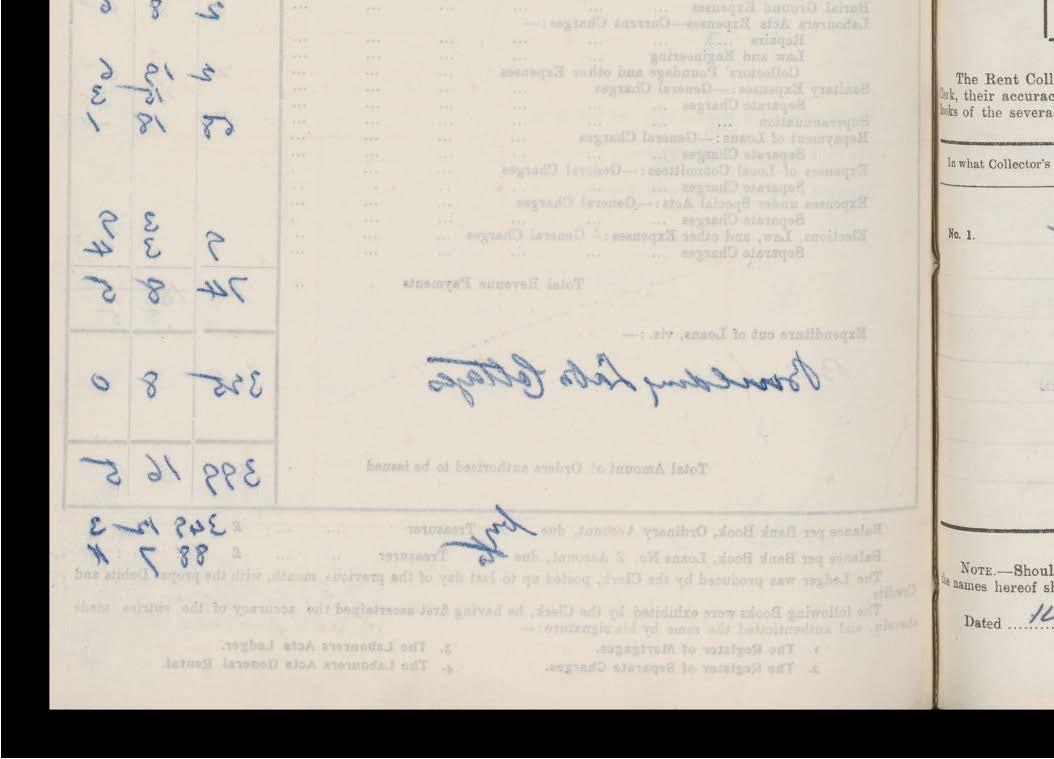 Burial Ground Expenses
Labourers Acts Expenses—Current Charges:—
Repairs
Law and Engineering
Collectors' Poundage and other Expenses
Sanitary Expenses:—General Charges
Separate Charges
Superannuation
Repayment of Loans:—General Charges
Separate Charges
Expenses of Local Committees:—General Charges
Separate Charges
Expenses under Special Acts:—General Charges
Separate Charges
Elections, Law, and other Expenses:—General Charges
Separate Charges
Total Revenue Payments 74 8 5
Expenditure out of Loans, viz.:—
Cottages 325 8 0
Total Amount of Orders authorised to be issued 399 16 5
Balance per Bank Book, Ordinary Account, due by Treasurer £ 349 12 3
Balance per Bank Book, Loans No. 2 Account, due Treasurer £ 88 7 4
The Ledger was produced by the Clerk, posted up to last day of the previous month, with the proper Debits and
Credits
The following Books were exhibited by the Clerk, he having first ascertained the accuracy of the entries made
therein, and authenticated the same by his signature:—
1. The Register of Mortgages.
2. The Register of Separate Charges.
3. The Labourers Acts Ledger.
4. The Labourers Acts General Rental.
The Rent Coll
Clerk, their accurac
Books of the severa
In what Collector's
No. 1.
NOTE.—Shoul
the names hereof sh
Dated